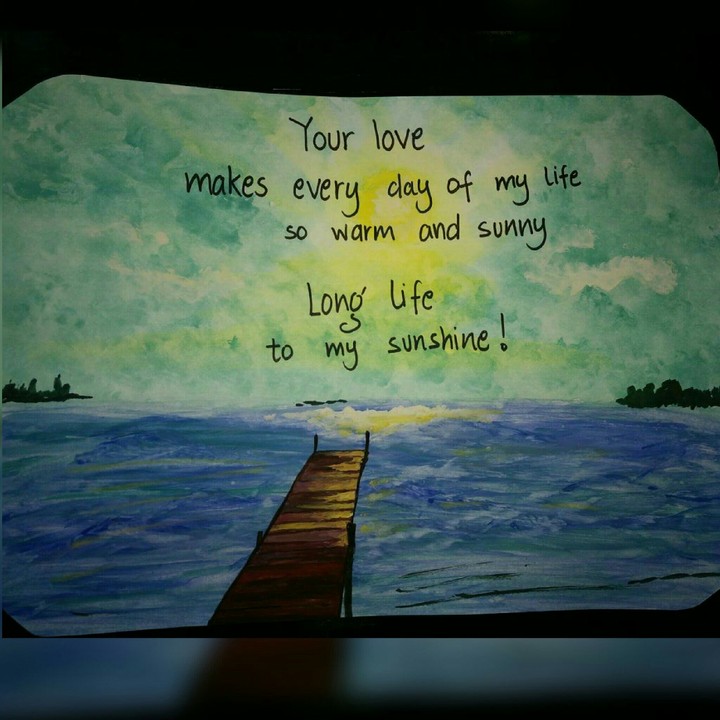 Your love
makes every day of my life
so warm and sunny
Long life
to my sunshine!